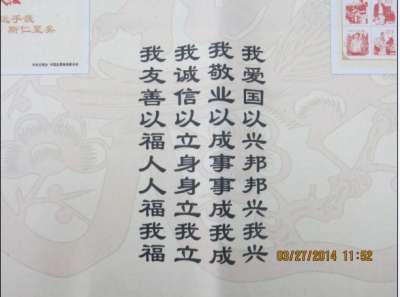 我爱国以兴邦邦兴我兴
我敬业以成事事成我成
我诚信以立身身立我立
我友善以福人人福我福
斯仁至矣
03/27/2014 11:52